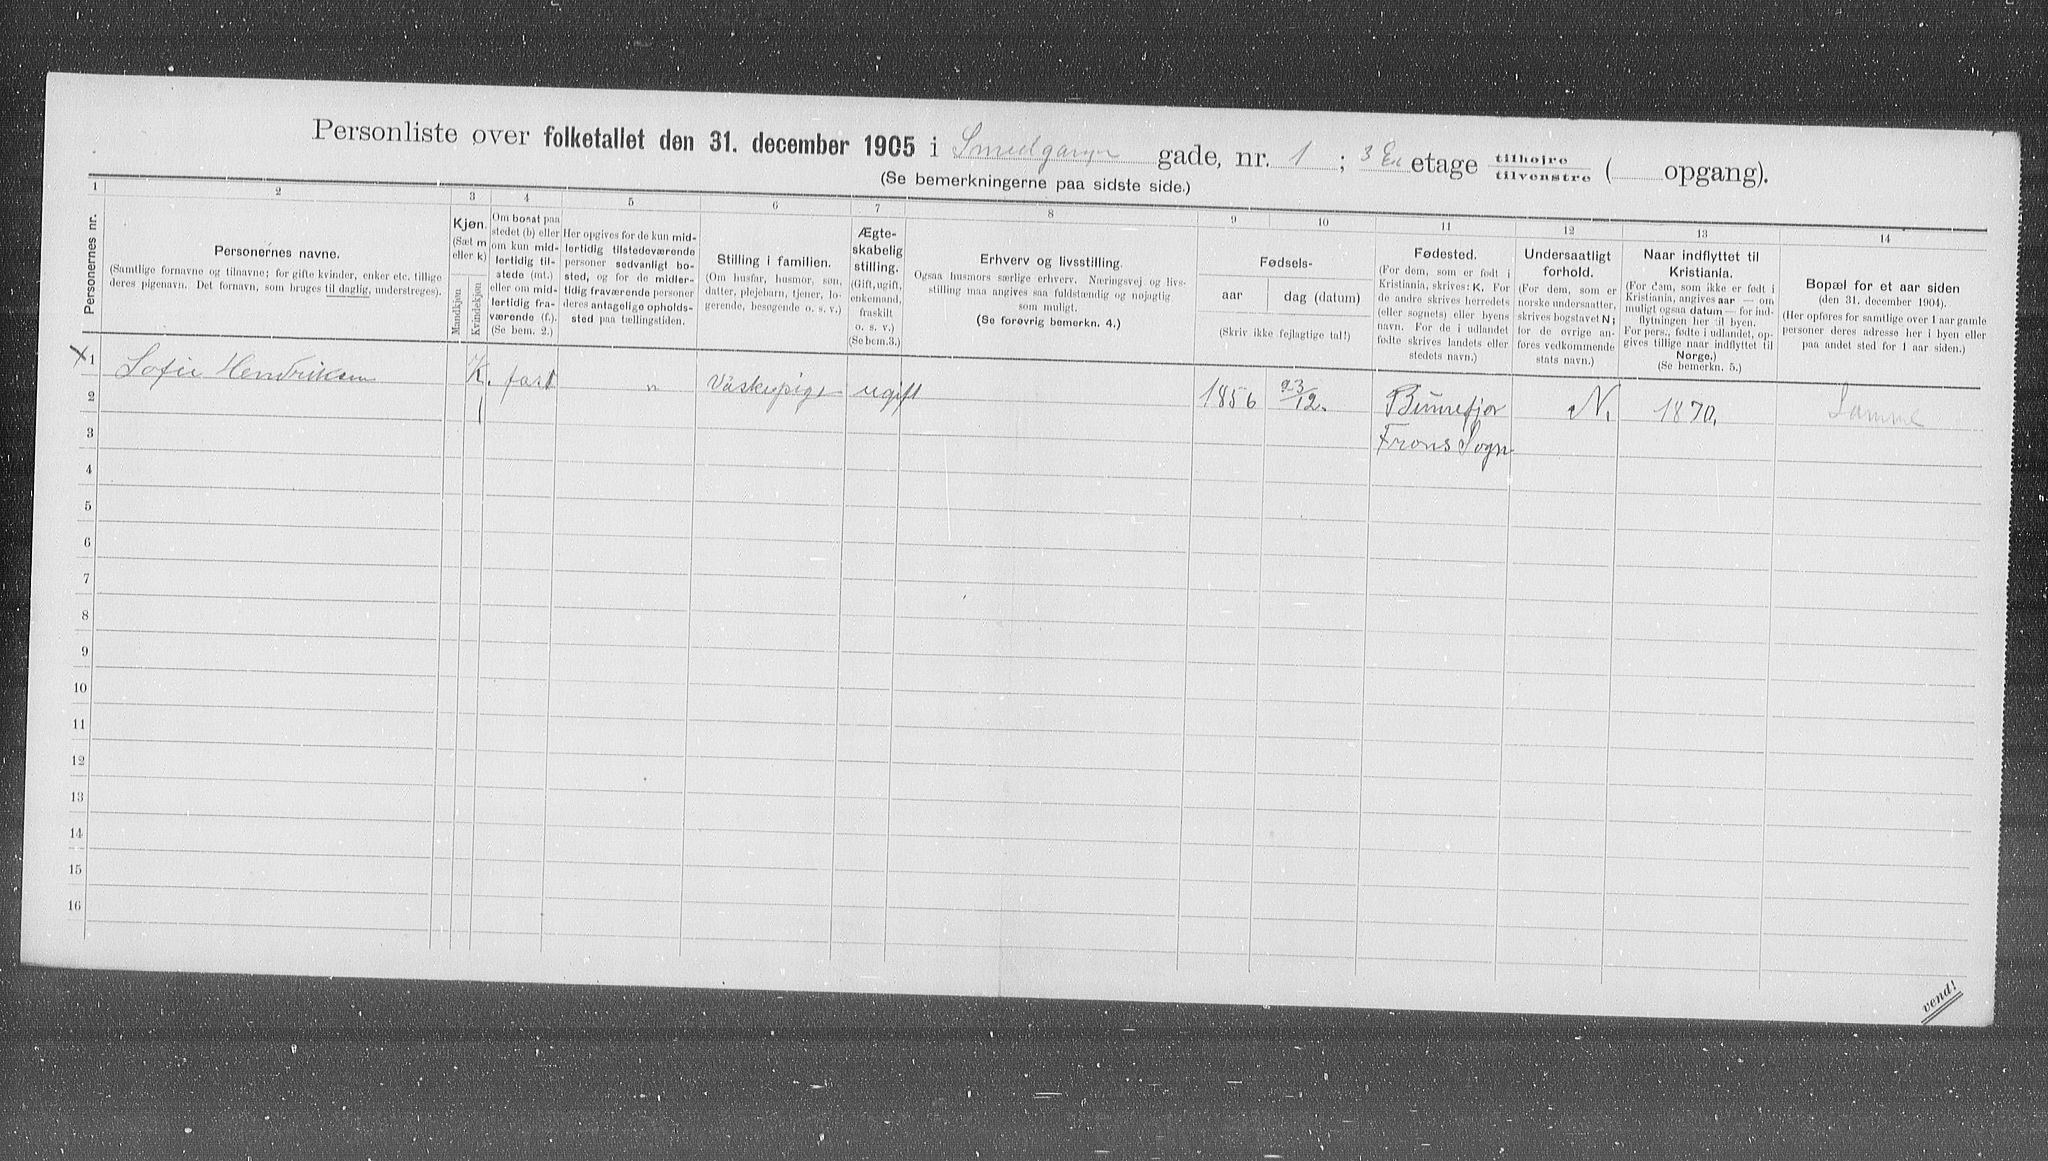 Personliste over folketallet den 31. december 1905 i Smedgangen gade, nr. 1 ; 3 etage tilhøjre tilvenstre ( opgang).
(Se bemerkningerne paa sidste side.)
1 2 3 4 5 6 7 8 9 10 11 12 13 14
Personernes nr.
Personernes navne.
(Samtlige fornavne og tilnavne; for gifte kvinder, enker etc. tillige
deres pigenavn. Det fornavn, som bruges til daglig, understreges).
Kjøn.
(Sæt m
eller k)
Mandkjøn
Kvindekjøn
Om bosat paa
stedet (b) eller
om kun mid-
lertidig til-
stede (mt.)
eller om mid-
lertidig fra-
værende (f.).
(Se bem. 2.)
Her opgives for de kun mid-
lertidig tilstedeværende
personer sedvanligt bo-
sted, og for de midler-
tidig fraværende personer
deres antagelige opholds-
sted paa tællingstiden.
Stilling i familien.
(Om husfar, husmor, søn,
datter, plejebarn, tjener, lo-
gerende, besøgende o. s. v.)
Ægte-
skabelig
stilling.
(Gift, ugift,
enkemand,
fraskilt
o. s. v.)
(Se bem. 3.)
Erhverv og livsstilling.
Ogsaa husmors særlige erhverv. Næringsvej og livs-
stilling maa angives saa fuldstændig og nøjagtig
som muligt.
(Se forøvrig bemerkn. 4.)
Fødsels-
aar
dag (datum)
(Skriv ikke fejlagtige tal!)
Fødested.
(For dem, som er født i
Kristiania, skrives: K. For
de andre skrives herredets
(eller sognets) eller byens
navn. For de i udlandet
fødte skrives landets eller
stedets navn.)
Undersaatligt
forhold.
(For dem, som er
norske undersaatter,
skrives bogstavet N;
for de øvrige an-
føres vedkommende
stats navn.)
Naar indflyttet til
Kristiania.
(For dem, som ikke er født i
Kristiania, angives aar — om
muligt ogsaa datum — for ind-
flytningen her til byen.
For pers., fødte i udlandet, op-
gives tillige naar indflyttet til
Norge.)
(Se bemerkn. 5.)
Bopæl for et aar siden
(den 31. december 1904).
(Her opføres for samtlige over 1 aar gamle
personer deres adresse her i byen eller
paa andet sted for 1 aar siden.)
x 1 Sofie Hendriksen K. fast " Vaskepige ugift 1856 23/12. Bunnefjor N. 1870. Samme
2 1 Frons Sogn
3
4
5
6
7
8
9
10
11
12
13
14
15
16
vend!